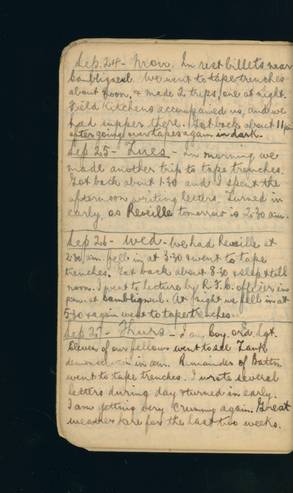 Sep. 24 - Mon. In rest billets near
Sambligneul. We went to tape trenches
about noon, & made 2 trips, one at night.
Field Kitchens accompanied us, and we
had supper there. Got back about 11 pm
after going over tapes again in dark.
Sep 25 - Tues - In morning we
made another trip to tape trenches.
Got back about 1.30 and spent the
afternoon writing letters. Turned in
early, as Reveille tomorrow is 2.30 am.
Sep 26 - Wed - We had Reveille at
2.30 am. fell in at 3.30 & went to tape
trenches. Got back about 8.30 & slept till
noon. I went to lecture by R.F.C. officer in
p.m. at Sambligneul. At night we fell in at
5.30 & again went to tape trenches.
Sep 27 - Thurs - I am Coy. ord. Sgt.
Eleven of our fellows went to see Tank
demonstration in a.m. Remainder of Battn
went to tape trenches. I wrote several
letters during day & turned in early.
I am getting very crummy again. Great
weather here for the last two weeks.